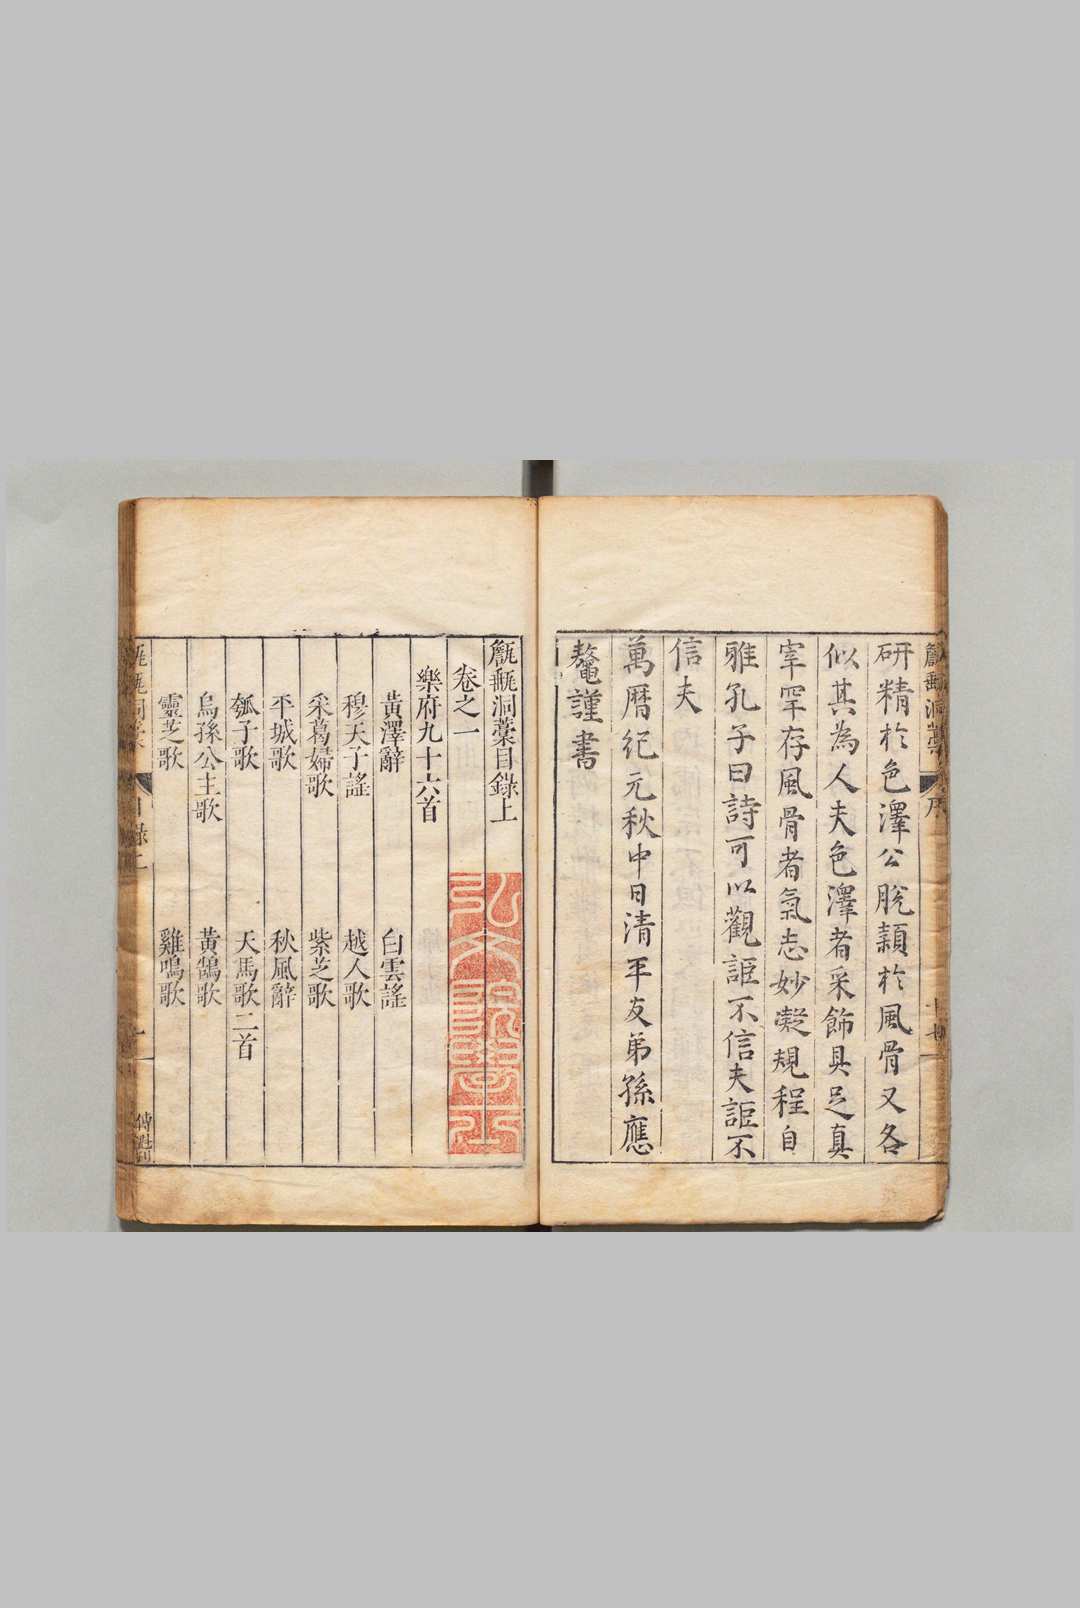 研精於色澤公脫穎於風骨又各
似其為人夫色澤者采飾具足真
宰罕存風骨者氣志妙凝規程自
雅孔子曰詩可以觀詎不信夫詎不
信夫
萬曆紀元秋中日清平友弟孫應
鰲謹書
甔甀洞藁目錄上
卷之一
樂府九十六首
黃澤辭 白雲謠
穆天子謠 越人歌
采葛婦歌 紫芝歌
平城歌 秋風辭
瓠子歌 天馬歌二首
烏孫公主歌 黃鵠歌
靈芝歌 雞鳴歌